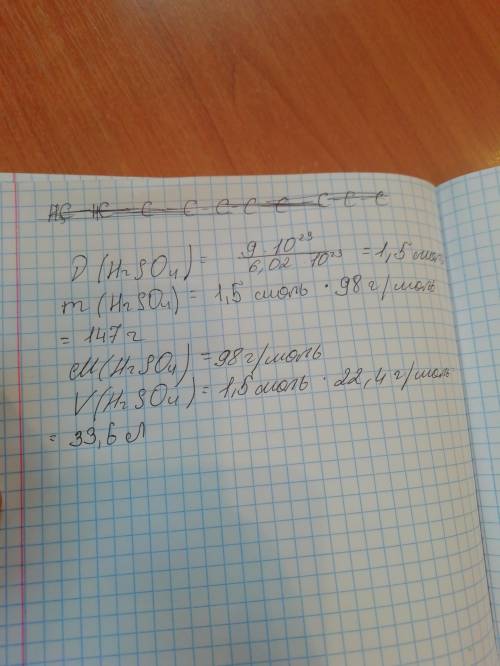 HC - HC - C - C - C - C - C - C - C - C
D (H₂SO₄) = 9 · 10²³ / 6,02 · 10²³ = 1,5 моль
m (H₂SO₄) = 1,5 моль · 98 г/моль
= 147 г
M (H₂SO₄) = 98 г/моль
V (H₂SO₄) = 1,5 моль · 22,4 г/моль
= 33,6 л